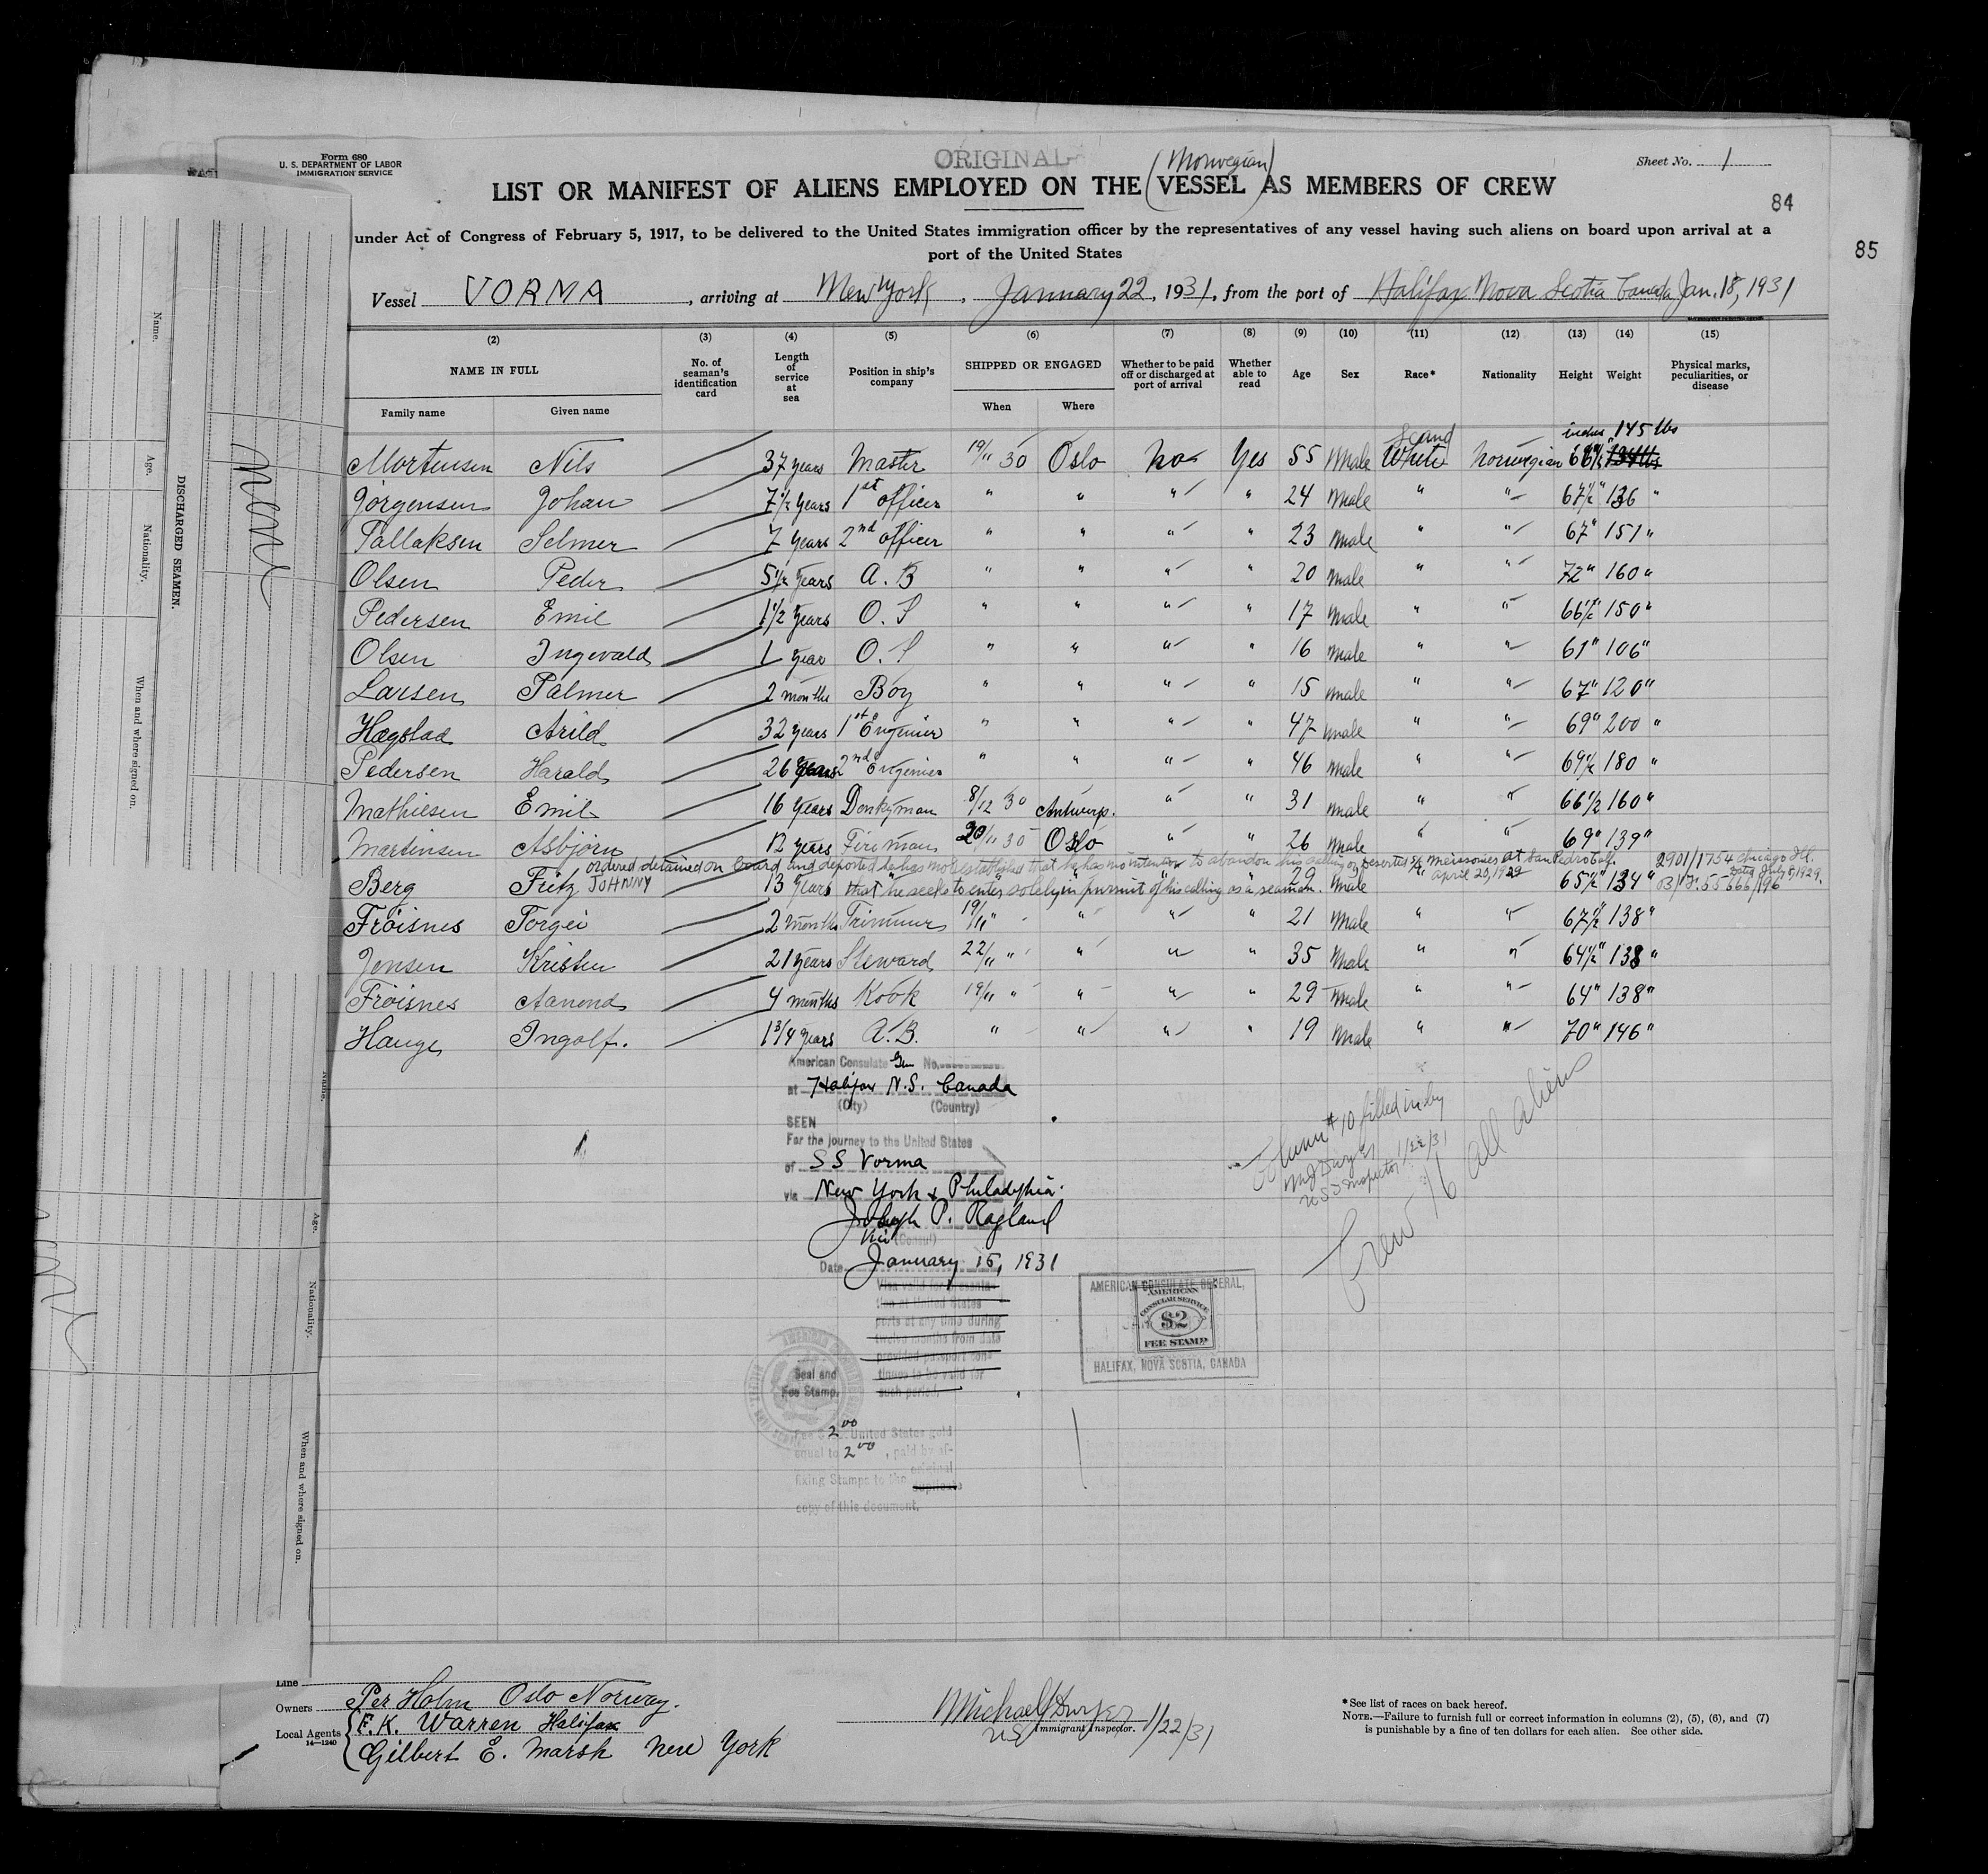 Form 680
U. S. DEPARTMENT OF LABOR
IMMIGRATION SERVICE
ORIGINAL
(Norwegian)
Sheet No. 1
LIST OR MANIFEST OF ALIENS EMPLOYED ON THE VESSEL AS MEMBERS OF CREW
84
85
under Act of Congress of February 5, 1917, to be delivered to the United States immigration officer by the representatives of any vessel having such aliens on board upon arrival at a
port of the United States
Vessel VORMA, arriving at New York, January 22, 1931, from the port of Halifax Nova Scotia Canada Jan. 18, 1931
(2) (3) (4) (5) (6) (7) (8) (9) (10) (11) (12) (13) (14) (15)
NAME IN FULL
Family name Given name
No. of seaman's identification card
Length of service at sea
Position in ship's company
SHIPPED OR ENGAGED
When Where
Whether to be paid off or discharged at port of arrival
Whether able to read
Age
Sex
Race*
Nationality
Height
Weight
Physical marks, peculiarities, or disease
Scand inches 145 lbs
Mortensen Nils 37 years Master 19/11 30 Oslo no Yes 55 Male White Norwegian 66½ 134 lbs
Jorgensen Johan 7½ years 1st officer " " " " 24 Male " " 67½" 136 "
Tallaksen Selmer 7 years 2nd officer " " " " 23 Male " " 67" 151 "
Olsen Peder 5½ years A. B " " " " 20 Male " " 72" 160 "
Pedersen Emil 1½ years O. S " " " " 17 Male " " 66½" 150 "
Olsen Ingevald 1 year O. S " " " " 16 Male " " 61" 106 "
Larsen Palmer 2 months Boy " " " " 15 Male " " 67" 120 "
Hægstad Arild 32 years 1st Engineer " " " " 47 Male " " 69" 200 "
Pedersen Harald 26 years 2nd Engenier " " " " 46 Male " " 69½ 180 "
Mathiesen Emil 16 years Donkyman 8/12 30 Antwerp. " " 31 Male " " 66½ 160 "
Martinsen Asbjörn 12 years Fireman 20/11 30 Oslo " " 26 Male " " 69" 139 "
ordered detained on board and deported he has not established that he has no intention to abandon his calling or deserted S/S Meissonier at San Pedro Calf. 2901/1754 Chicago Ill.
Berg Fritz JOHNNY 13 years that he seeks to enter solely in pursuit of his calling as a seaman. 29 Male " April 20, 1929 65½" 134 " 55666/196 dated July 5, 1929.
Fröisnes Torgei 2 months Trimmer 19/11 " " " " 21 Male " " 67½" 138 "
Jensen Kristen 21 years Steward 22/11 " " " " 35 Male " " 64½" 138 "
Fröisnes Aanond 4 months Kook 19/11 " " " " 29 Male " " 64" 138 "
Hauge Ingolf. 1¾ years A. B. " " " " 19 Male " " 70" 146 "
American Consulate Gen No.
at Halifax N.S. Canada
(City) (Country)
SEEN
For the journey to the United States
of SS Vorma
via New York & Philadelphia.
Joseph P. Ragland
Vice (Consul)
Date January 15, 1931
Visa valid for presenta-
tion at United States
ports at any time during
twelve months from date
provided passport con-
tinues to be valid for
such period.
Seal and
Fee Stamp.
Fee $ 2 00 United States gold
equal to 2 00, paid by af-
fixing Stamps to the original
duplicate
copy of this document.
Column # 10 filled in by
M J Dwyer
U S Inspector 1/22/31
Crew 16 all aliens
AMERICAN CONSULATE GENERAL,
AMERICAN
CONSULAR SERVICE
$2
FEE STAMP
HALIFAX, NOVA SCOTIA, CANADA
Line
Owners Per Holm Oslo Norway.
Local Agents F. K. Warren Halifax
14—1240
Gilbert E. Marsh New York
Michael J Dwyer
US Immigrant Inspector. 1/22/31
*See list of races on back hereof.
NOTE.—Failure to furnish full or correct information in columns (2), (5), (6), and (7)
is punishable by a fine of ten dollars for each alien. See other side.
DISCHARGED SEAMEN.
Name.
Age.
Nationality.
When and where signed on.
None
Name.
Age.
Nationality.
When and where signed on.